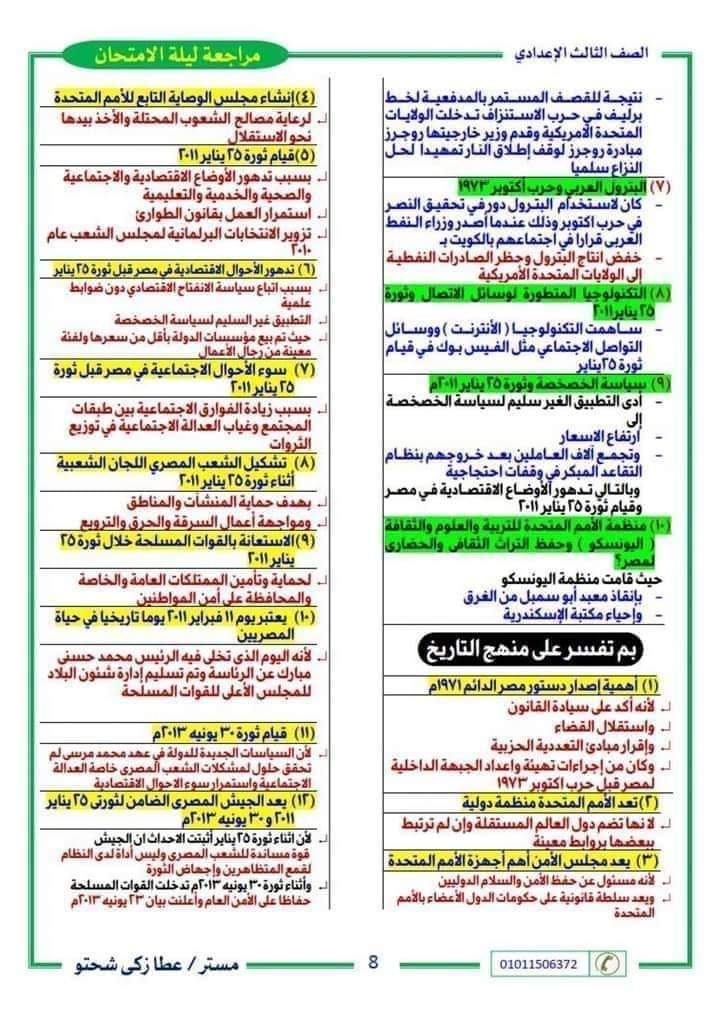 الصف الثالث الإعدادي
مراجعة ليلة الامتحان
- نتيجة للقصف المستمر بالمدفعية لخط
برليف في حرب الاستنزاف تدخلت الولايات
المتحدة الامريكية وقدم وزير خارجيتها روجرز
مبادرة روجرز لوقف إطلاق النار تمهيدا لحل
النزاع سلميا
(٧) البترول العربي وحرب أكتوبر ١٩٧٣
- كان لاستخدام البترول دور في تحقيق النصر
في حرب اكتوبر وذلك عندما أصدر وزراء النفط
العربى قرارا في اجتماعهم بالكويت بـ
- خفض انتاج البترول وحظر الصادرات النفطية
إلى الولايات المتحدة الأمريكية
(٨) التكنولوجيا المتطورة لوسائل الاتصال وثورة
٢٥ يناير ٢٠١١
- ساهمت التكنولوجيا ( الأنترنت ) ووسائل
التواصل الاجتماعي مثل الفيس بوك في قيام
ثورة ٢٥ يناير
(٩) سياسة الخصخصة وثورة ٢٥ يناير ٢٠١١م
- أدى التطبيق الغير سليم لسياسة الخصخصة
إلى
- ارتفاع الاسعار
- وتجمع آلاف العاملين بعد خروجهم بنظام
التقاعد المبكر في وقفات احتجاجية
- وبالتالي تدهور الأوضاع الاقتصادية في مصر
وقيام ثورة ٢٥ يناير ٢٠١١
(١٠) منظمة الأمم المتحدة للتربية والعلوم والثقافة
( اليونسكو ) وحفظ التراث الثقافى والحضارى
لمصر؟
حيث قامت منظمة اليونسكو
- بإنقاذ معبد أبو سمبل من الغرق
- وإحياء مكتبة الإسكندرية
بم تفسر على منهج التاريخ
(١) أهمية إصدار دستور مصر الدائم ١٩٧١م
لأنه أكد على سيادة القانون
واستقلال القضاء
وإقرار مبادئ التعددية الحزبية
وكان من إجراءات تهيئة واعداد الجبهة الداخلية
لمصر قبل حرب اكتوبر ١٩٧٣
(٢) تعد الأمم المتحدة منظمة دولية
لانها تضم دول العالم المستقلة وإن لم ترتبط
ببعضها بروابط معينة
(٣) يعد مجلس الأمن أهم أجهزة الأمم المتحدة
لأنه مسئول عن حفظ الأمن والسلام الدوليين
ويعد سلطة قانونية على حكومات الدول الأعضاء بالأمم
المتحدة
(٤) إنشاء مجلس الوصاية التابع للأمم المتحدة
لرعاية مصالح الشعوب المحتلة والأخذ بيدها
نحو الاستقلال
(٥) قيام ثورة ٢٥ يناير ٢٠١١
بسبب تدهور الأوضاع الاقتصادية والاجتماعية
والصحية والخدمية والتعليمية
استمرار العمل بقانون الطوارئ
تزوير الانتخابات البرلمانية لمجلس الشعب عام
٢٠١٠
(٦) تدهور الأحوال الاقتصادية في مصر قبل ثورة ٢٥ يناير
بسبب اتباع سياسة الانفتاح الاقتصادي دون ضوابط
علمية
التطبيق غير السليم لسياسة الخصخصة
حيث تم بيع مؤسسات الدولة بأقل من سعرها ولفئة
معينة من رجال الأعمال
(٧) سوء الأحوال الاجتماعية في مصر قبل ثورة
٢٥ يناير ٢٠١١
بسبب زيادة الفوارق الاجتماعية بين طبقات
المجتمع وغياب العدالة الاجتماعية في توزيع
الثروات
(٨) تشكيل الشعب المصري اللجان الشعبية
أثناء ثورة ٢٥ يناير ٢٠١١
بهدف حماية المنشأت والمناطق
ومواجهة أعمال السرقة والحرق والترويع
(٩) الاستعانة بالقوات المسلحة خلال ثورة ٢٥
يناير ٢٠١١
لحماية وتأمين الممتلكات العامة والخاصة
والمحافظة على أمن المواطنين
(١٠) يعتبر يوم ١١ فبراير ٢٠١١ يوما تاريخيا في حياة
المصريين
لأنه اليوم الذى تخلى فيه الرئيس محمد حسنى
مبارك عن الرئاسة وتم تسليم إدارة شئون البلاد
للمجلس الأعلى للقوات المسلحة
(١١) قيام ثورة ٣٠ يونيه ٢٠١٣م
لأن السياسات الجديدة للدولة في عهد محمد مرسى لم
تحقق حلول لمشكلات الشعب المصرى خاصة العدالة
الاجتماعية واستمرار سوء الاحوال الاقتصادية
(١٢) يعد الجيش المصرى الضامن لثورتى ٢٥ يناير
٢٠١١ و ٣٠ يونيه ٢٠١٣م
لأن اثناء ثورة ٢٥ يناير أثبتت الاحداث ان الجيش
قوة مساندة للشعب المصرى وليس أداة لدى النظام
لقمع المتظاهرين وإجهاض الثورة
وأثناء ثورة ٣٠ يونيه ٢٠١٣م تدخلت القوات المسلحة
حفاظا على الأمن العام وأعلنت بيان ٢٣ يونيه ٢٠١٣م
01011506372
8
مستر / عطا زكى شحتو